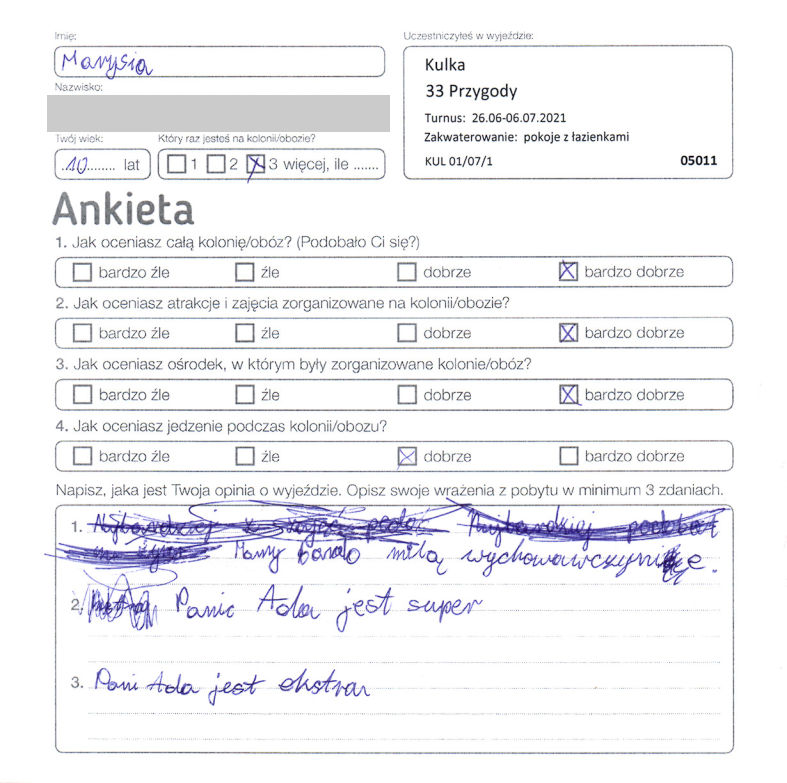 Imię:
Uczestniczyłeś w wyjeździe:
Marysia
Kulka
33 Przygody
Nazwisko:
Turnus: 26.06-06.07.2021
Zakwaterowanie: pokoje z łazienkami
KUL 01/07/1 05011
Twój wiek: Który raz jesteś na kolonii/obozie?
.10........ lat 1 2 3 więcej, ile .......
Ankieta
1. Jak oceniasz całą kolonię/obóz? (Podobało Ci się?)
bardzo źle źle dobrze bardzo dobrze
2. Jak oceniasz atrakcje i zajęcia zorganizowane na kolonii/obozie?
bardzo źle źle dobrze bardzo dobrze
3. Jak oceniasz ośrodek, w którym były zorganizowane kolonie/obóz?
bardzo źle źle dobrze bardzo dobrze
4. Jak oceniasz jedzenie podczas kolonii/obozu?
bardzo źle źle dobrze bardzo dobrze
Napisz, jaka jest Twoja opinia o wyjeździe. Opisz swoje wrażenia z pobytu w minimum 3 zdaniach.
1.
Mamy bardo miłą wychowawczynię.
2. Panic Ada jest super
3. Pani Ada jest ekstra